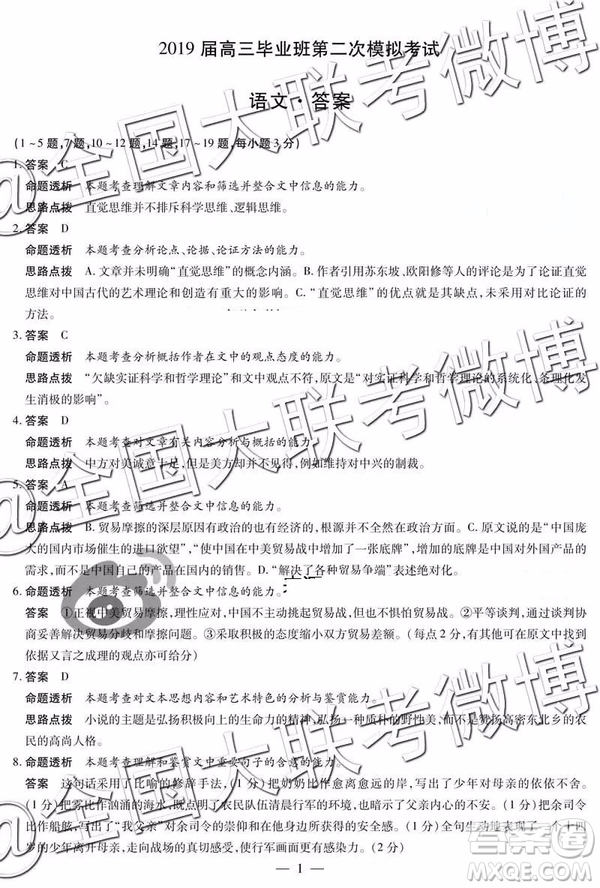 2019 届高三毕业班第二次模拟考试
语文·答案
(1～5 题,7 题,10～12 题,14 题,17～19 题,每小题 3 分)
1. 答案 C
命题透析 本题考查理解文章内容和筛选并整合文中信息的能力。
思路点拨 直觉思维并不排斥科学思维、逻辑思维。
2. 答案 D
命题透析 本题考查分析论点、论据、论证方法的能力。
思路点拨 A. 文章并未明确“直觉思维”的概念内涵。B. 作者引用苏东坡、欧阳修等人的评论是为了论证直觉
思维对中国古代的艺术理论和创造有重大的影响。C. “直觉思维”的优点就是其缺点,未采用对比论证的方
法。
3. 答案 C
命题透析 本题考查分析概括作者在文中的观点态度的能力。
思路点拨 “欠缺实证科学和哲学理论”和文中观点不符,原文是“对实证科学和哲学理论的系统化、条理化发
生消极的影响”。
4. 答案 D
命题透析 本题考查对文章有关内容分析与概括的能力。
思路点拨 中方对美诚意十足,但是美国出尔反尔,例如维持对中兴的制裁。
5. 答案 A
命题透析 本题考查筛选并整合文中信息的能力。
思路点拨 B. 贸易摩擦的深层原因有政治的也有经济的,根源并不完全在政治方面。C. 原文说的是“中国庞
大的国内市场催生的进口欲望”,“使中国在中美贸易战中增加了一张底牌”,增加的是中国对外国产品的
需求,而不是中国自己的产品在国内的销售。D. “解决了各种贸易争端”表述绝对化。
6. 命题透析 本题考查筛选并整合文中信息的能力。
答案 ①正视中美贸易摩擦,理性应对,中国不主动挑起贸易战,但也不惧怕贸易战。②平等谈判,通过协
商妥善解决贸易分歧和贸易摩擦问题。③采取积极的态度缩小双方贸易差额。(每点 2 分,有在原文中找的
依据又言之成理的观点亦可给分)
7. 答案 D
命题透析 本题考查对文本思想内容和艺术特色的分析与鉴赏能力。
思路点拨 小说的主题是弘扬积极向上的生命力的精神,弘扬一种质朴的野性美,而不是赞美高密东北乡的农
民的高尚人格。
8. 命题透析 本题考查理解和鉴赏文中重要句子的能力。
答案 这句话用了比喻的修辞手法,(1 分)把奶奶比作愈离愈远的岸,写出了少年对母亲的依依不舍。
(1 分)把雾比作汹涌的海水,既写明了农民队伍清晨行军的环境,也暗示了父亲内心的不安。(1 分)把余司
令比作船舷,写出了“我父亲”对余司令的崇仰和在他身上获得的力量。(1 分)全句生动地表现了一个十四
岁的少年离开母亲,走向战场的这份紧张,使行军画面更有意境。(2 分)
— 1 —
@全国大联考微博
@全国大联考微博
@全国大联考微博
作业精灵